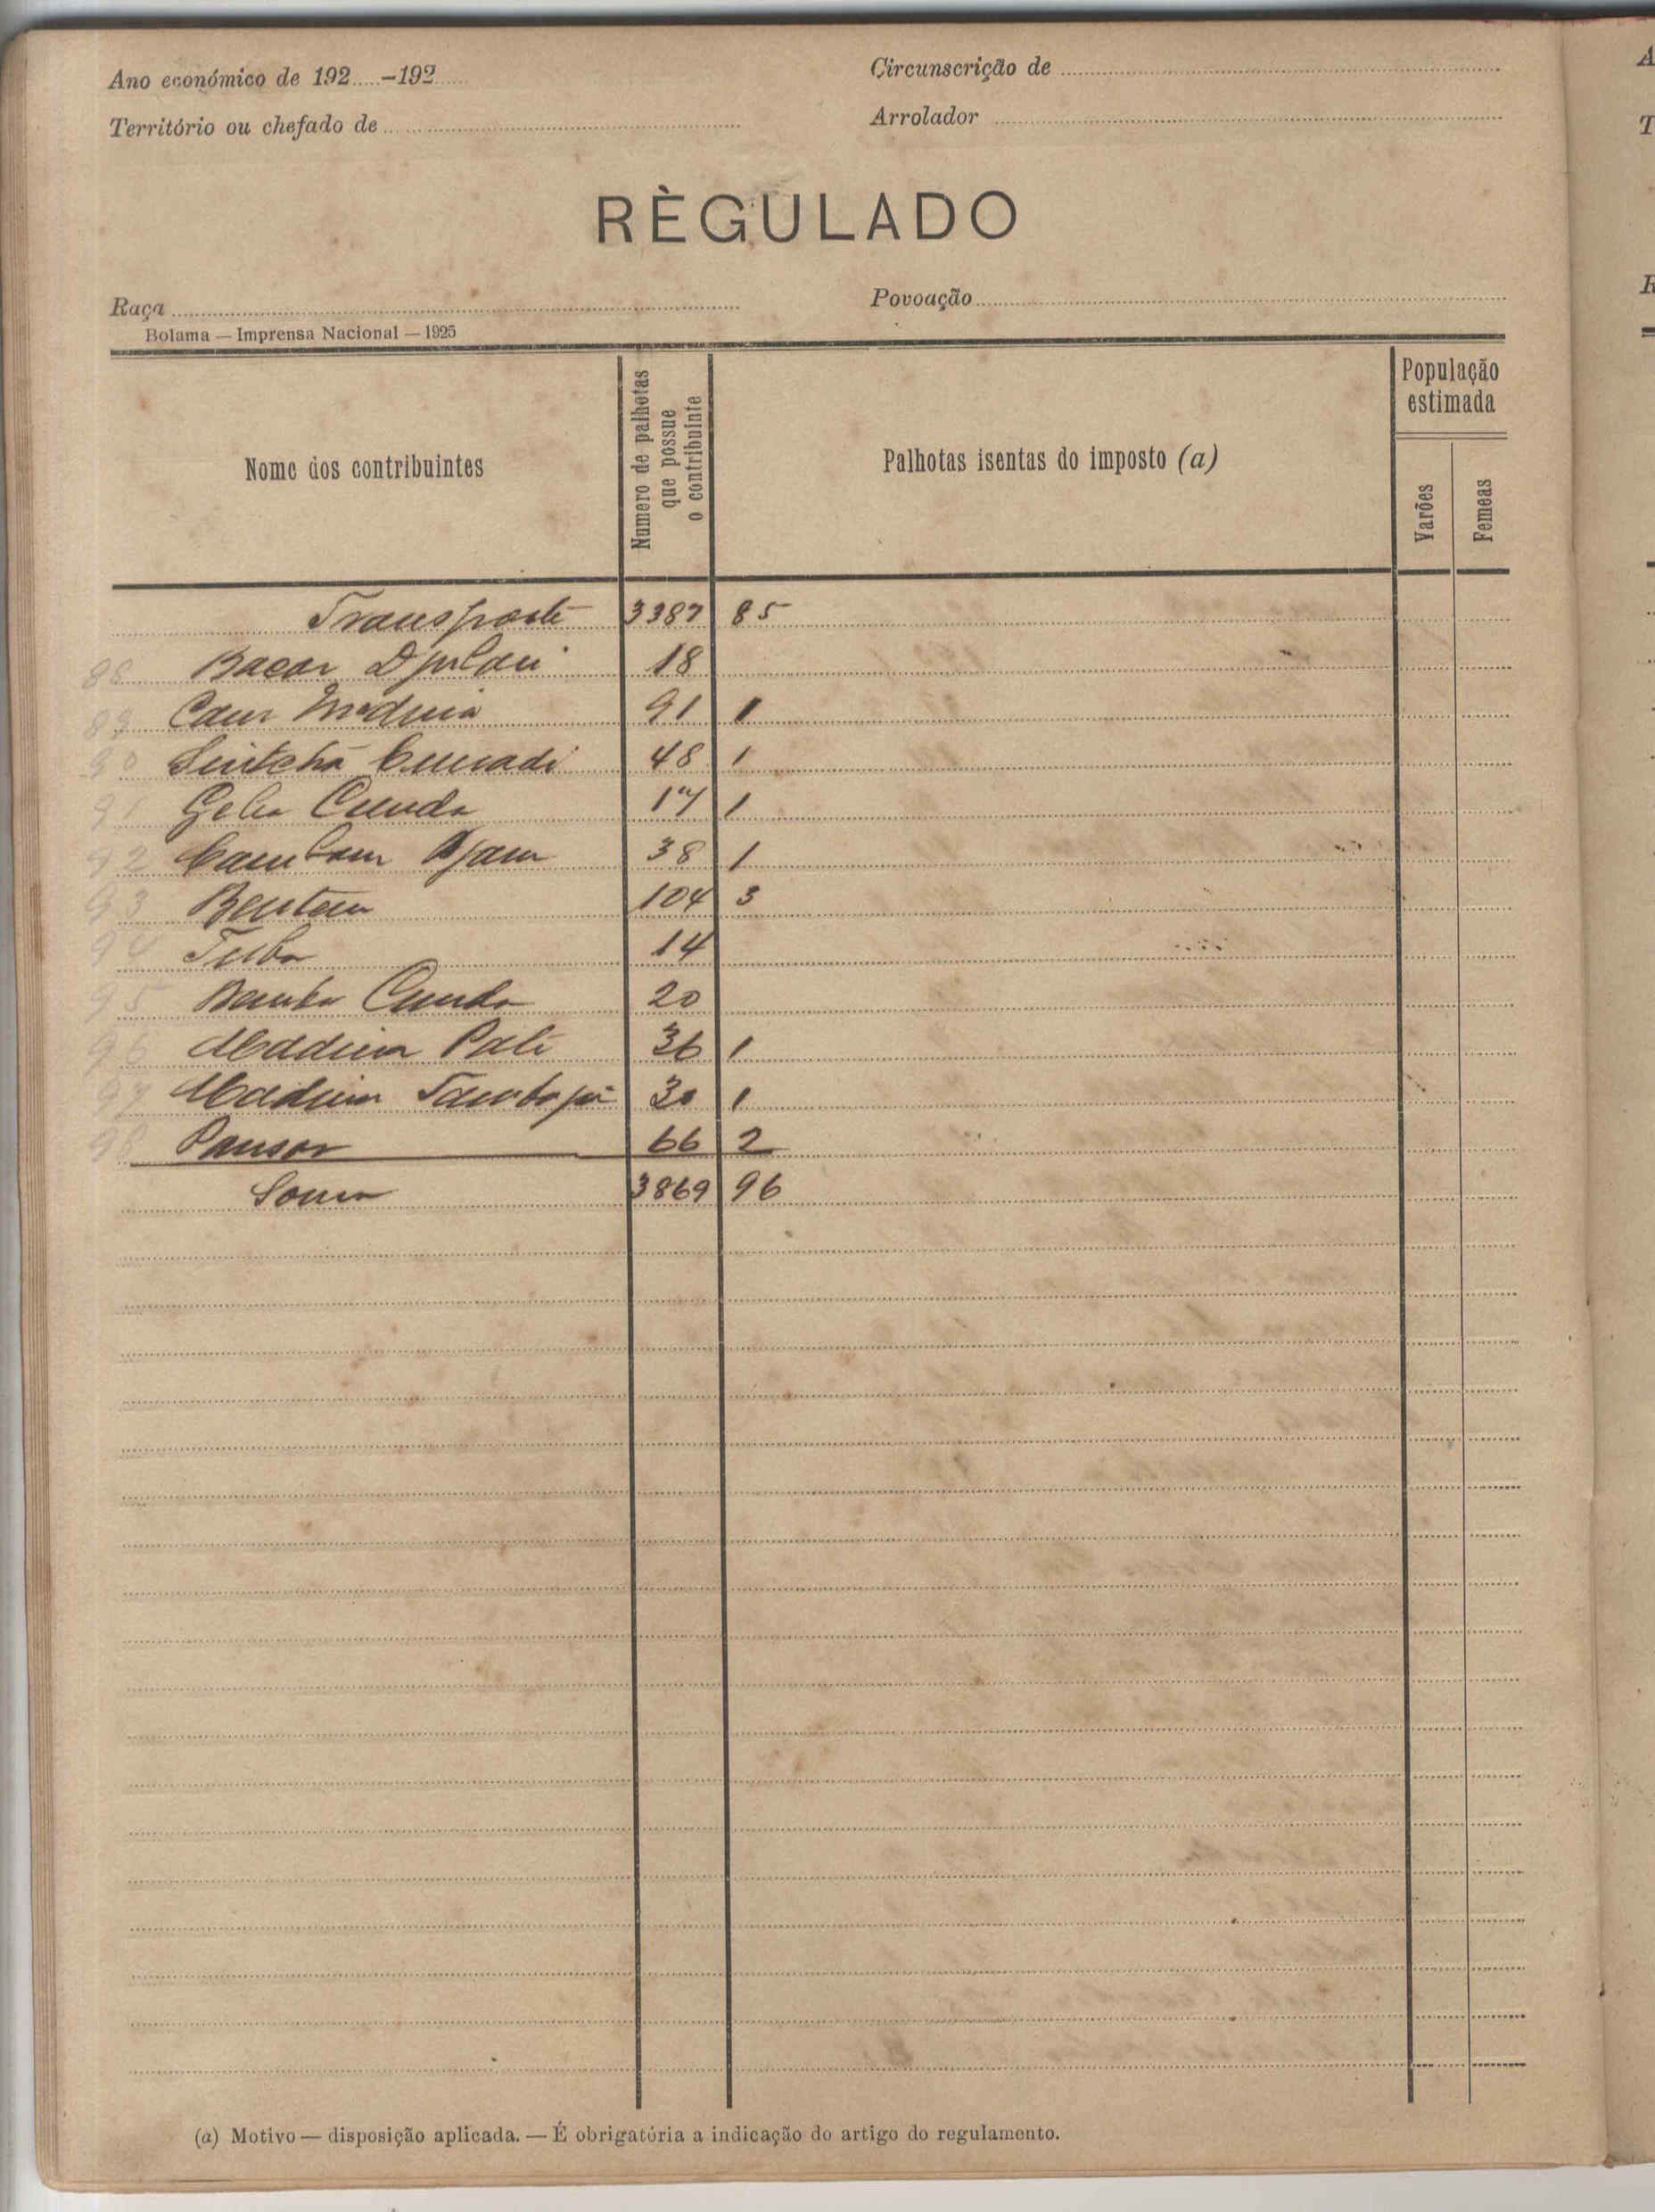 Ano económico de 192.....-192.....
Circunscrição de
Território ou chefado de
Arrolador
RÈGULADO
Raça
Povoação
Bolama — Imprensa Nacional — 1925
Nome dos contribuintes
Numero de palhotas que possue o contribuinte
Palhotas isentas do imposto (a)
População estimada
Varões
Femeas
Transporte 3387 85
88 Bacar Djulai 18
89 Cam 91 1
90 Sintchã 48 1
91 Geba Cunda 17 1
92 38 1
93 Bentem 104 3
94 14
95 Bamba Cunda 20
96 Madina Pali 36 1
97 Madina 30 1
98 Pansor 66 2
Soma 3869 96
(a) Motivo — disposição aplicada. — É obrigatória a indicação do artigo do regulamento.